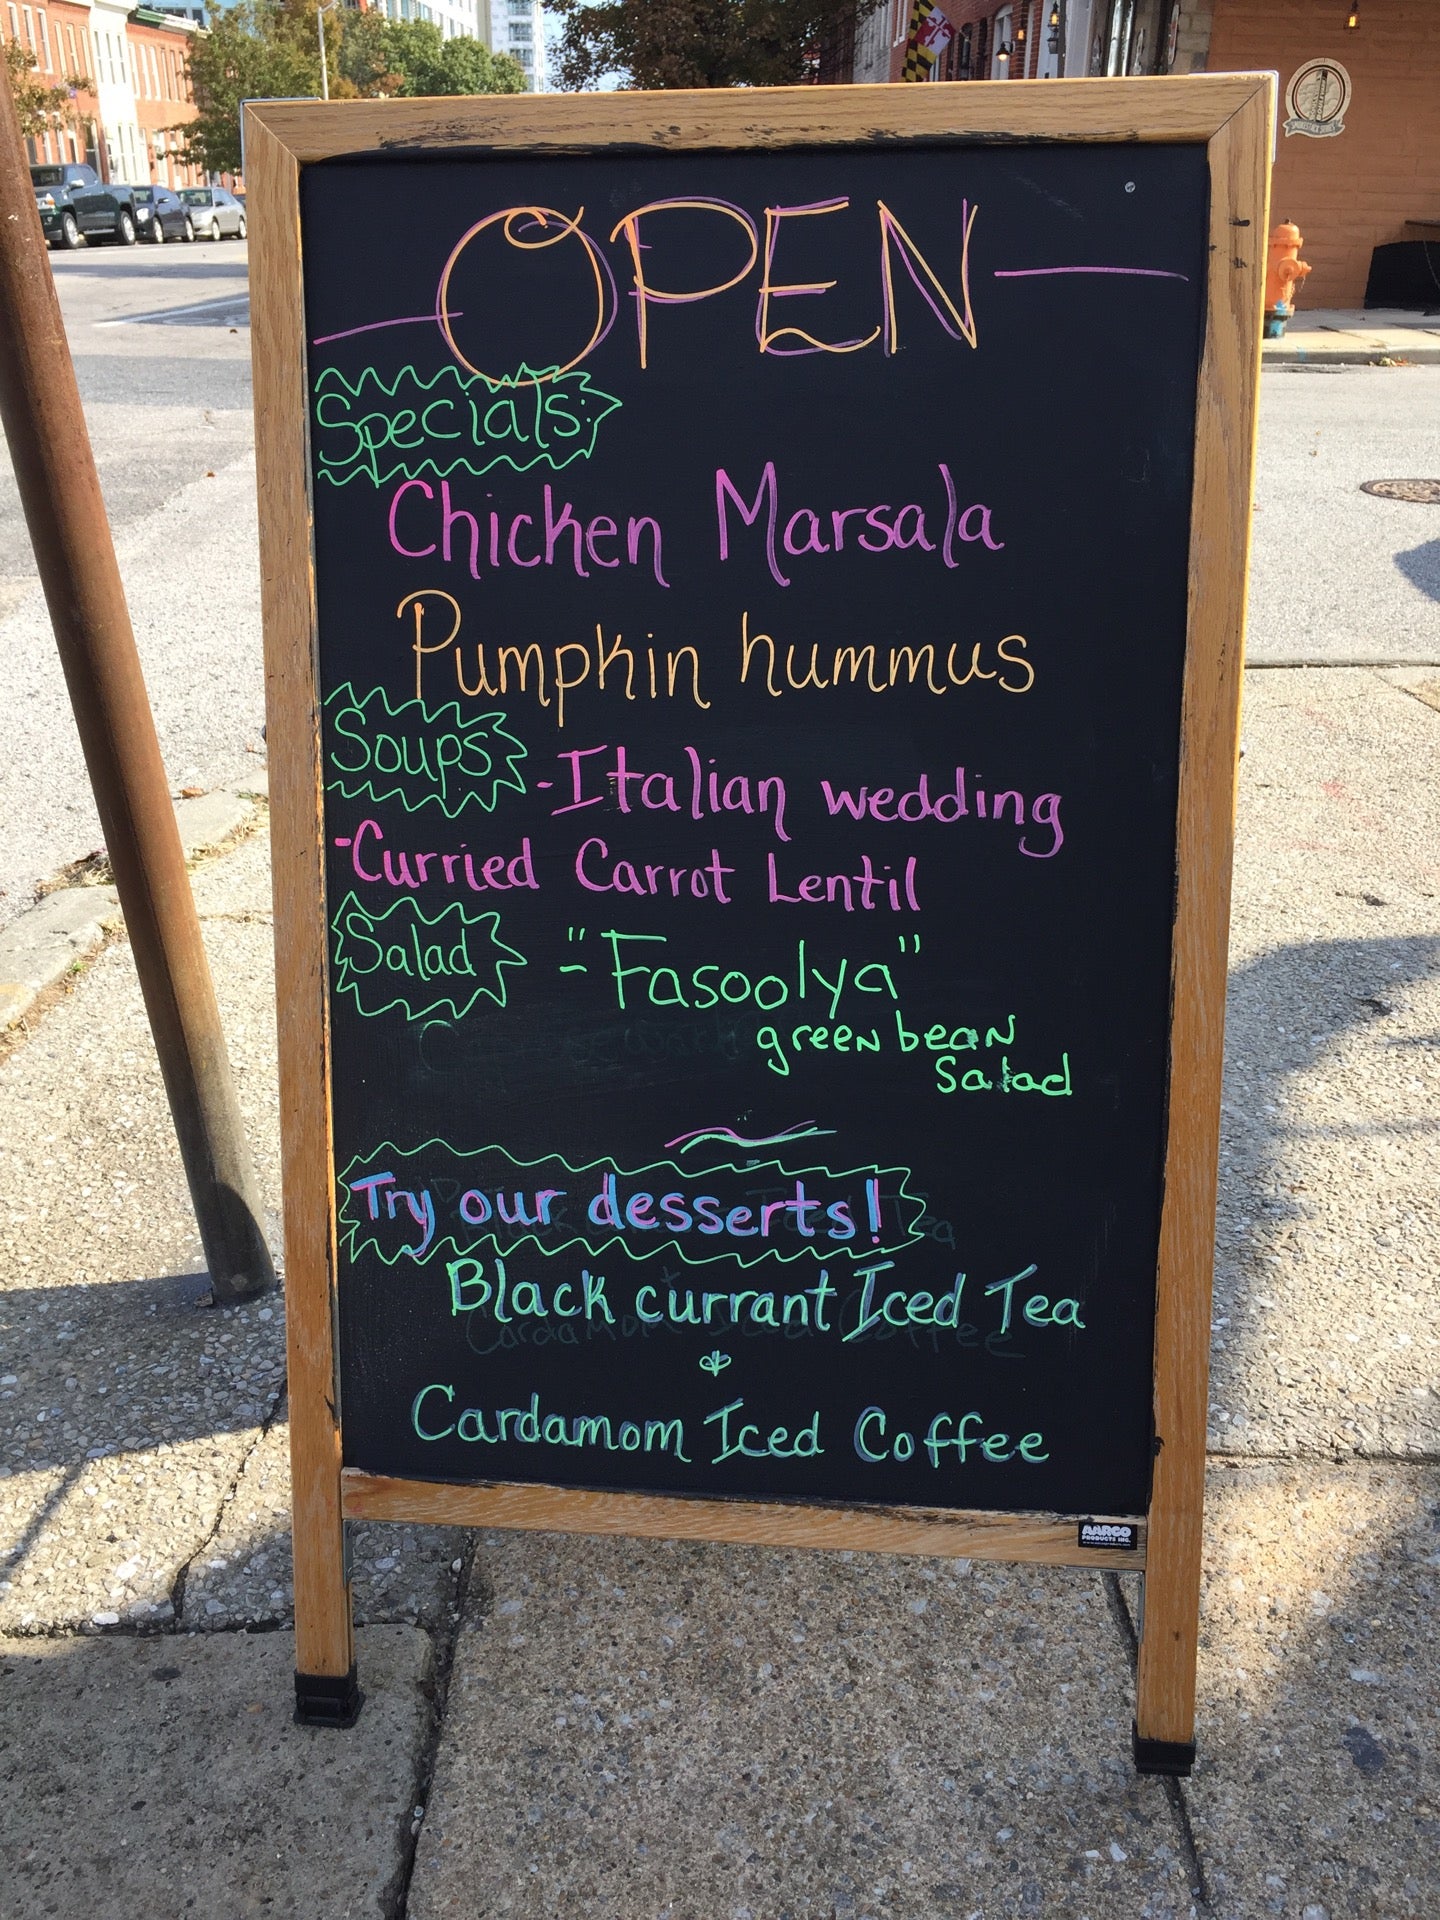 OPEN
Specials:
Chicken Marsala
Pumpkin hummus
Soups
-Italian wedding
-Curried Carrot Lentil
Salad
-"Fasoolya"
green bean
Salad
Try our desserts!
Black currant Iced Tea
&
Cardamom Iced Coffee
AARCO
PRODUCTS INC.